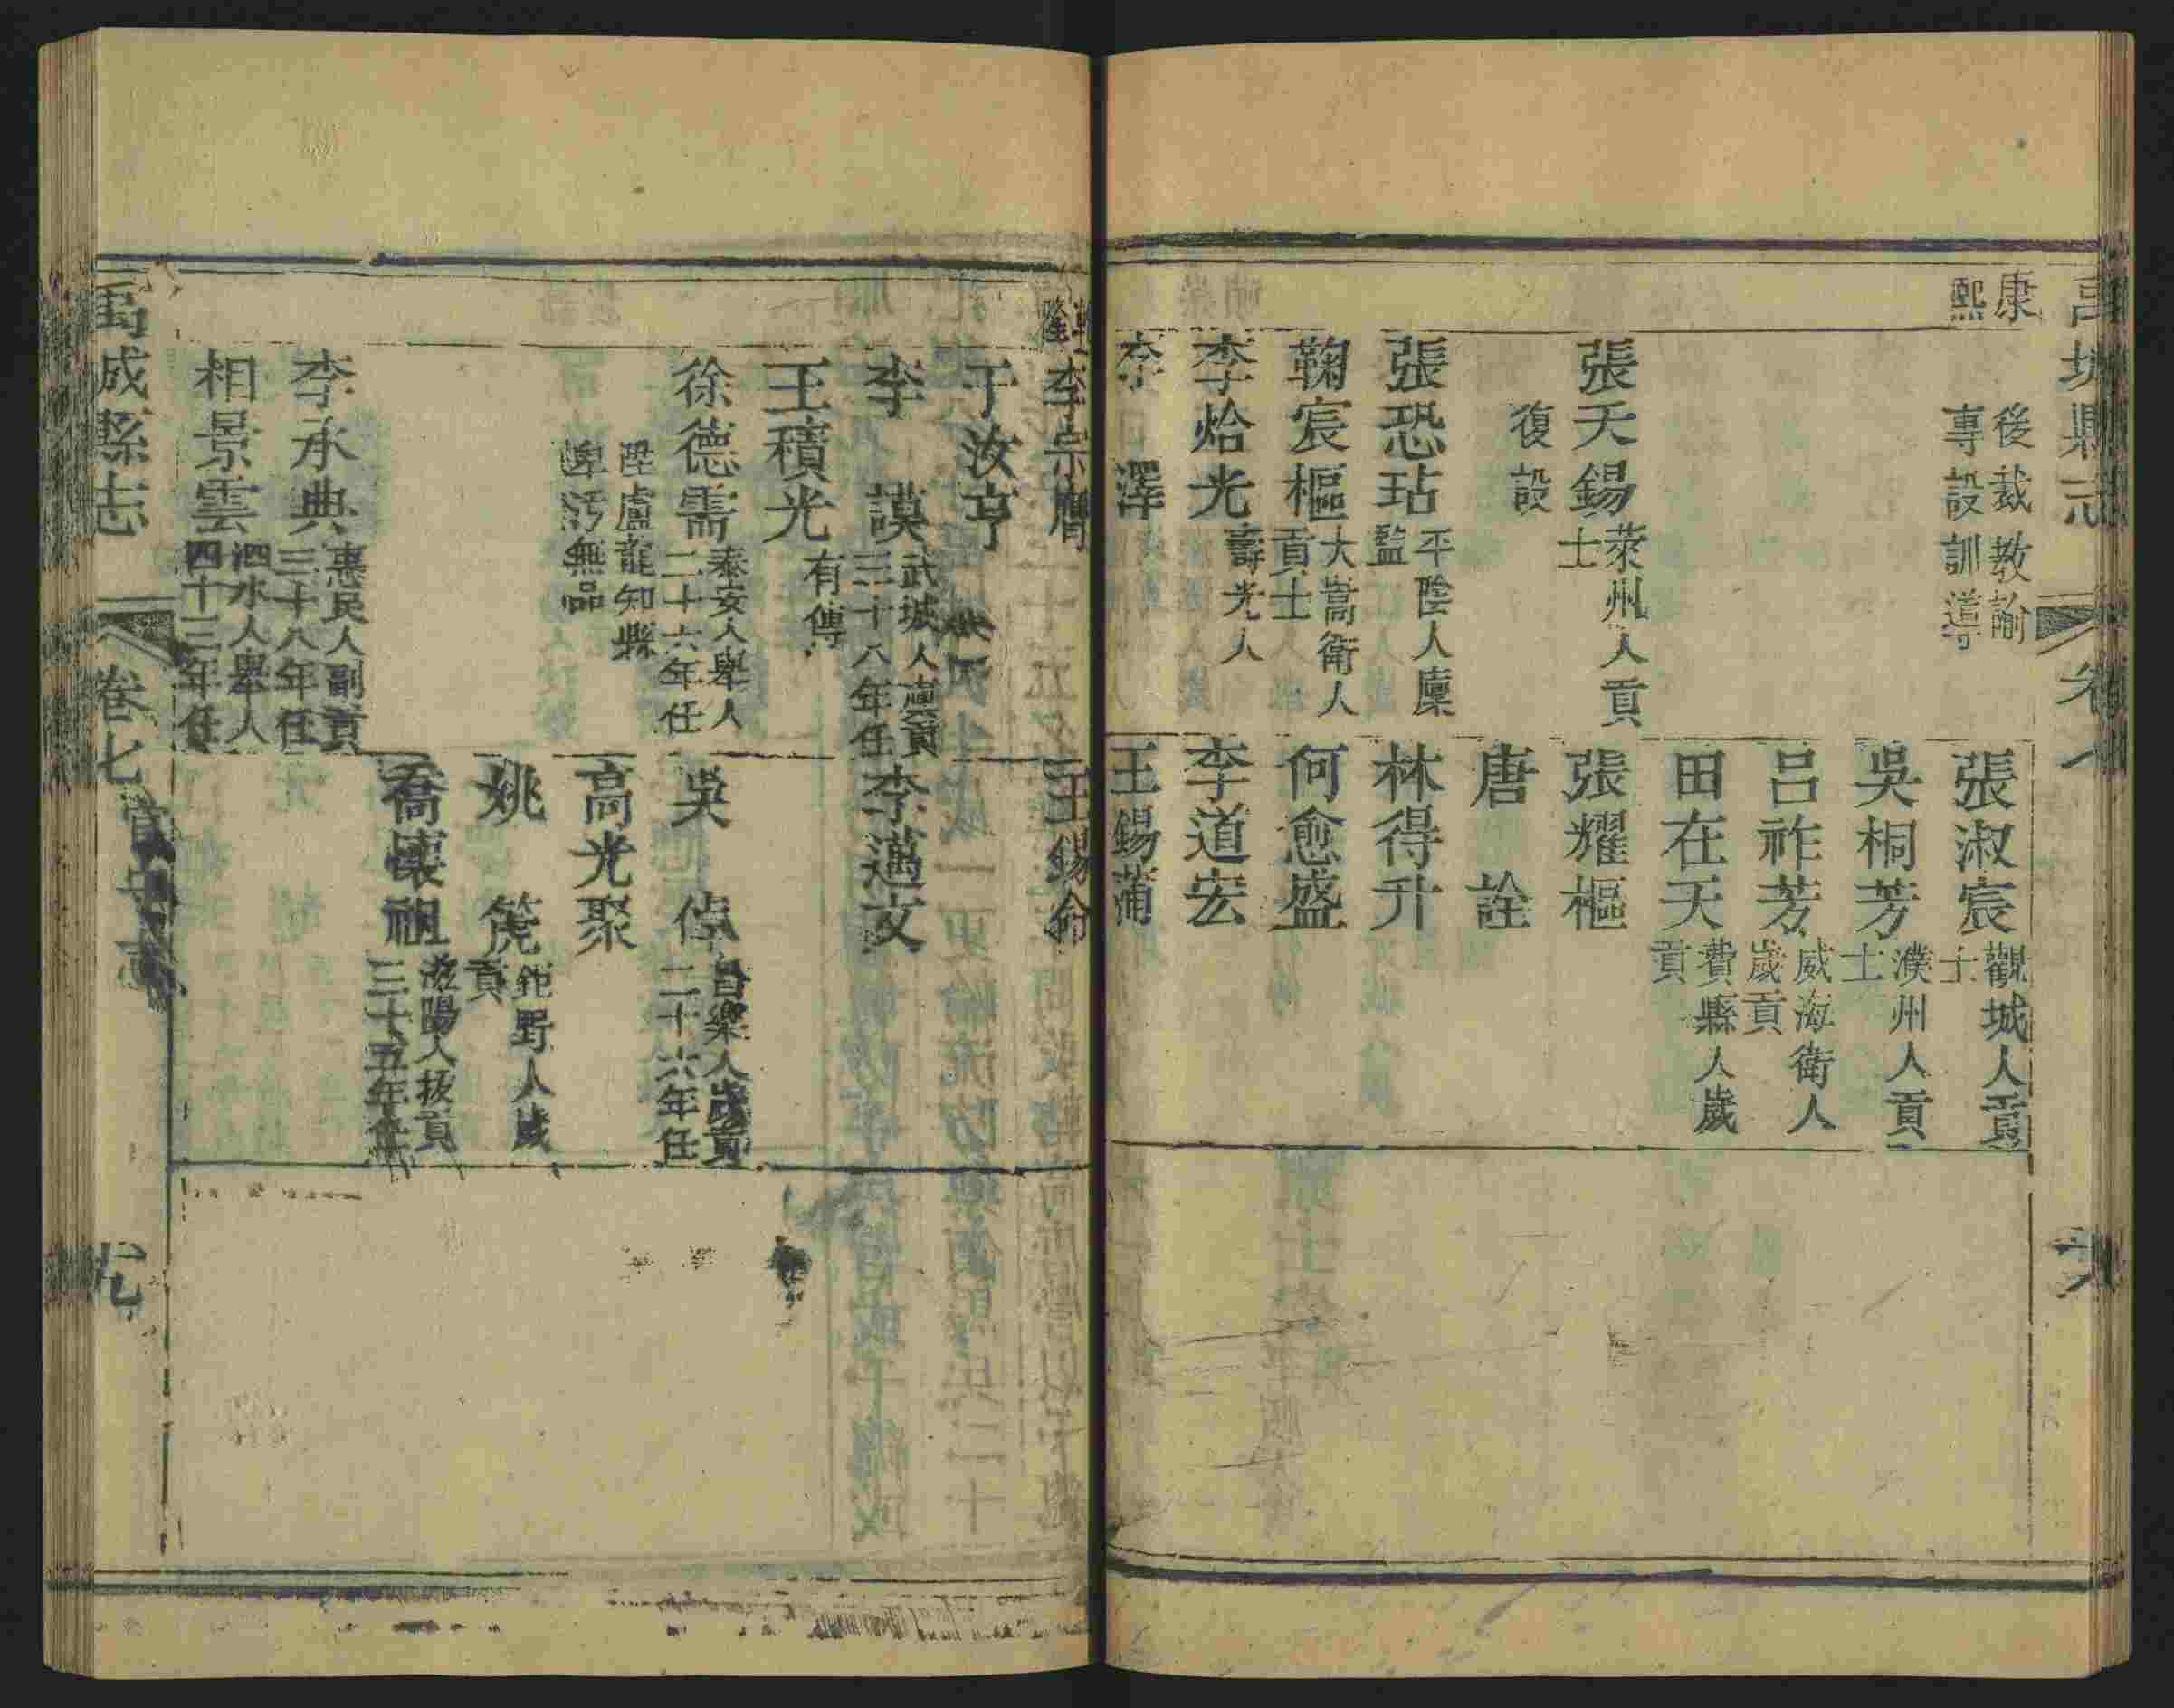 禹城縣志
卷
康熙
後裁教諭
專設訓導
張天錫
萊州人貢
士
復設
張恐玷
平陰人廩
監
鞠宸樞
大嵩衛人
貢士
李烚光
壽光人
李　澤
張淑宸
觀城人貢
士
吳桐芳
濮州人貢
士
呂祚芳
威海衛人
歲貢
田在天
費縣人歲
貢
張耀樞
唐　詮
林得升
何愈盛
李道宏
王錫蒲
乾隆
李宗膺
于汝亨
李　謨
武城人廩貢
三十八年任
有傳
王積光
徐德需
泰安人舉人
二十六年任
陞盧龍知縣
卑汚無品
李承典
惠民人副貢
三十八年任
相景雲
泗水人舉人
四十三年任
王錫命
李邁文
吳　倬
昌樂人歲貢
二十六年任
高光聚
姚　篪
鉅野人歲
貢
喬懷祖
滋陽人拔貢
三十五年任
禹城縣志
卷七